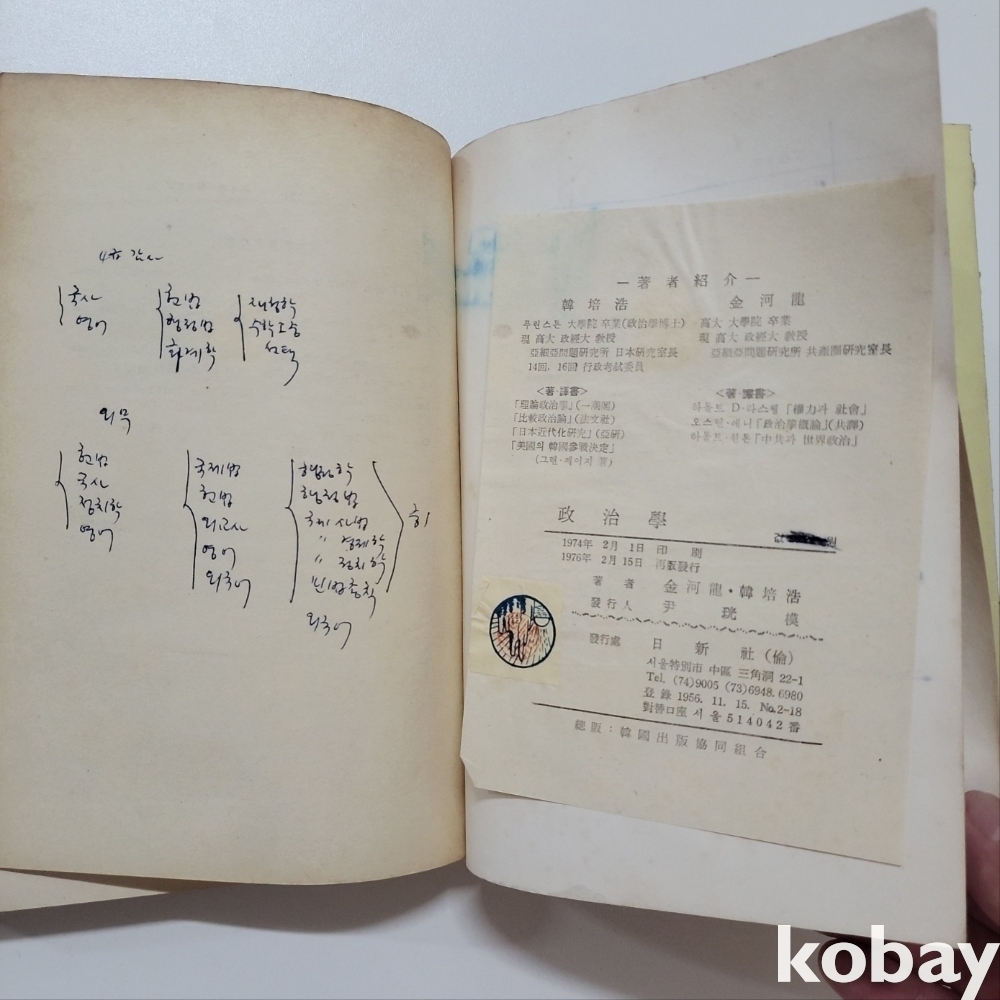 4급 감사
국사
영어
헌법
행정법
회계학
재정학
수학도중
선택
외무
헌법
국사
정치학
영어
국제법
헌법
외교사
영어
외국어
행정학
행정법
국제사법
〃 경제학
〃 정치학
민법총칙
외국어
—著者紹介—
韓培浩
프린스톤 大學院 卒業(政治學博士)
現 高大 政經大 敎授
亞細亞問題硏究所 日本硏究室長
14回, 16回 行政考試委員
<著·譯書>
「理論政治學」(一潮閣)
「比較政治論」(法文社)
「日本近代化硏究」(亞硏)
「美國의 韓國參戰決定」
(그렌·페이지 著)
金河龍
高大 大學院 卒業
現 高大 政經大 敎授
亞細亞問題硏究所 共産圈硏究室長
<著·譯書>
하롤드 D·라스웰 「權力과 社會」
오스틴·래니 「政治學槪論」(共譯)
하롤드·힌튼 「中共과 世界政治」
政治學
1974年 2月 1日 印刷
1976年 2月 15日 再版發行
著者 金河龍·韓培浩
發行人 尹珖模
發行處 日新社(倫)
서울特別市 中區 三角洞 22-1
Tel. (74)9005 (73)6948. 6980
登錄 1956. 11. 15. No.2-18
對替口座 서울514042番
總販:韓國出版協同組合
kobay